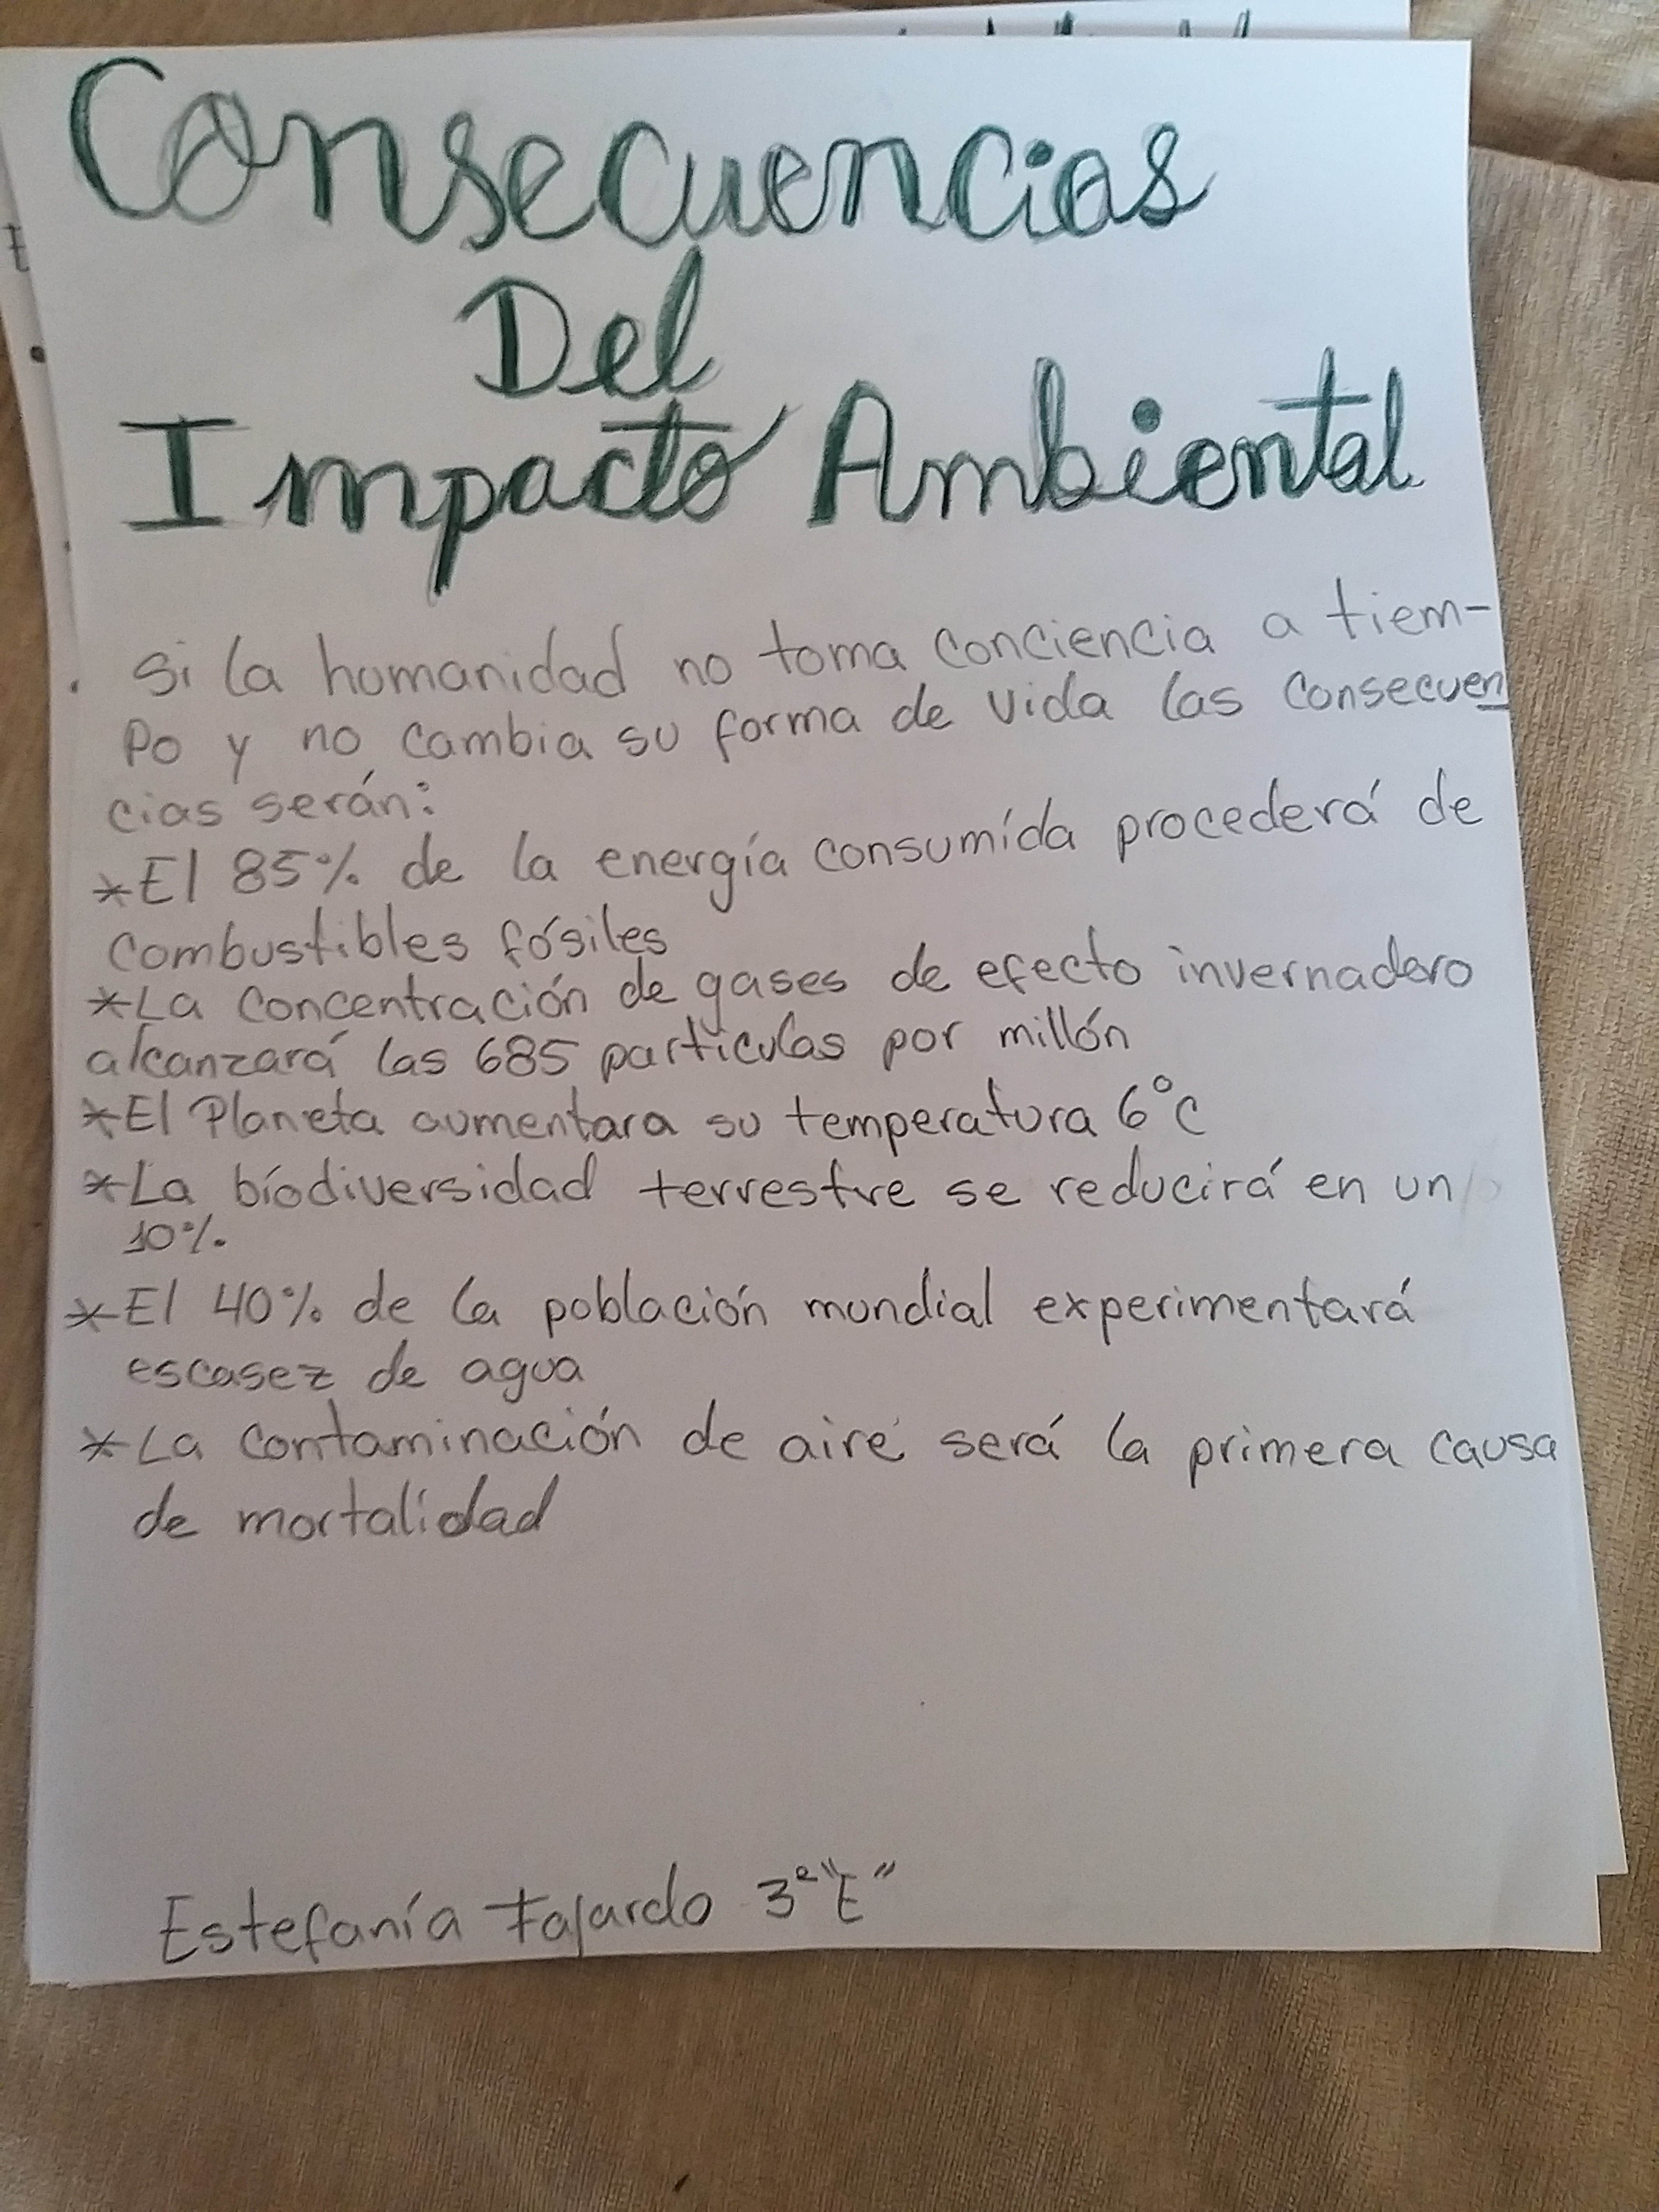 Consecuencias
Del
Impacto Ambiental
Si la humanidad no toma conciencia a tiem-
Po y no cambia su forma de vida las consecuen
cias serán:
*El 85% de la energía consumída procederá de
combustibles fósiles
*La concentración de gases de efecto invernadero
alcanzará las 685 particulas por millón
*El Planeta aumentara su temperatura 6°C
*La bíodiversidad terrestre se reducirá en un
10%.
*El 40% de la población mundial experimentará
escasez de agua
*La contaminación de aire será la primera causa
de mortalidad
Estefanía Fajardo 3° "E"